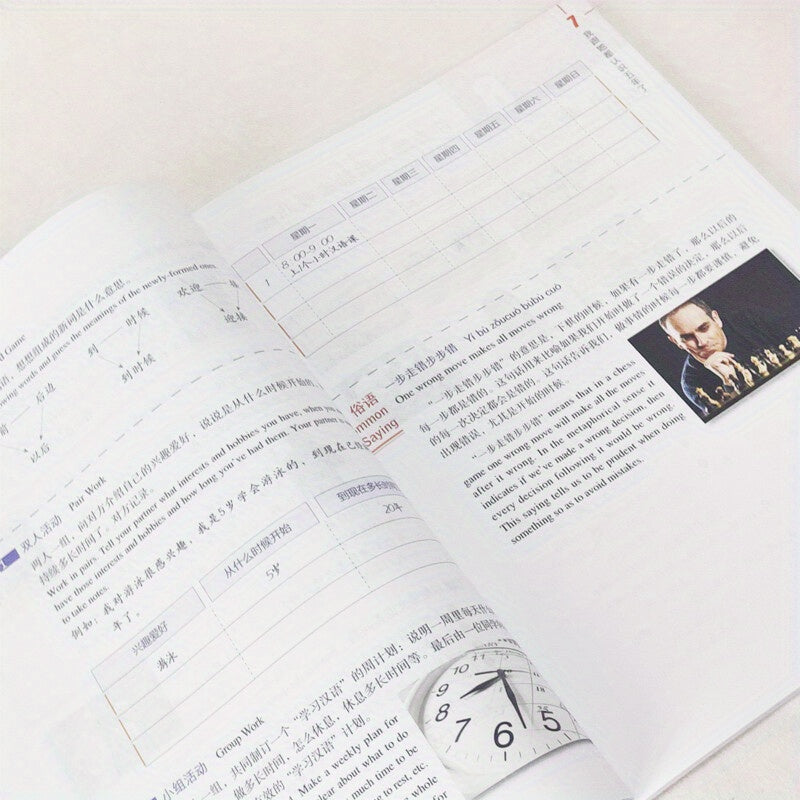 Game
语，想想组成的新词是什么意思。
wing words and guess the meanings of the newly-formed ones.
到 时候
欢迎
到时候
迎接
前 后边
以后
双人活动 Pair Work
两人一组，向对方介绍自己的兴趣爱好，说说是从什么时候开始的，
持续多长时间了。对方记录。
Work in pairs. Tell your partner what interests and hobbies you have, when you
have those interests and hobbies and how long you've had them. Your partner
to take notes.
例如：我对游泳很感兴趣，我是5岁学会游泳的，到现在已经
年了。
兴趣爱好 从什么时候开始 到现在多长时间
游泳 5岁 20年
小组活动 Group Work
一组，共同制订一个“学习汉语”的周计划：说明一周里每天什么
做多长时间，怎么休息，休息多长时间等。最后由一位同学
有效的“学习汉语”计划。
Make a weekly plan for
clear about what to do
much time to be
to rest, etc.
whole
for
10
9
8
7
6
5
7
我跟她都认识五年了
星期一 星期二 星期三 星期四 星期五 星期六 星期日
1 8:00-9:00
上1个小时汉语课
俗语
Common
Saying
一步走错步步错 Yí bù zǒucuò bùbù cuò
One wrong move makes all moves wrong
“一步走错步步错”的意思是，下棋的时候，如果有一步走错了，那么以后的
每一步都是错的。这句话用来比喻如果我们开始时做了一个错误的决定，那么以后
的每一次决定都会是错的。这句话告诉我们，做事情的时候每一步都要谨慎，避免
出现错误，尤其是开始的时候。
“一步走错步步错” means that in a chess
game one wrong move will make all the moves
after it wrong. In the metaphorical sense it
indicates if we've made a wrong decision, then
every decision following it would be wrong.
This saying tells us to be prudent when doing
something so as to avoid mistakes.